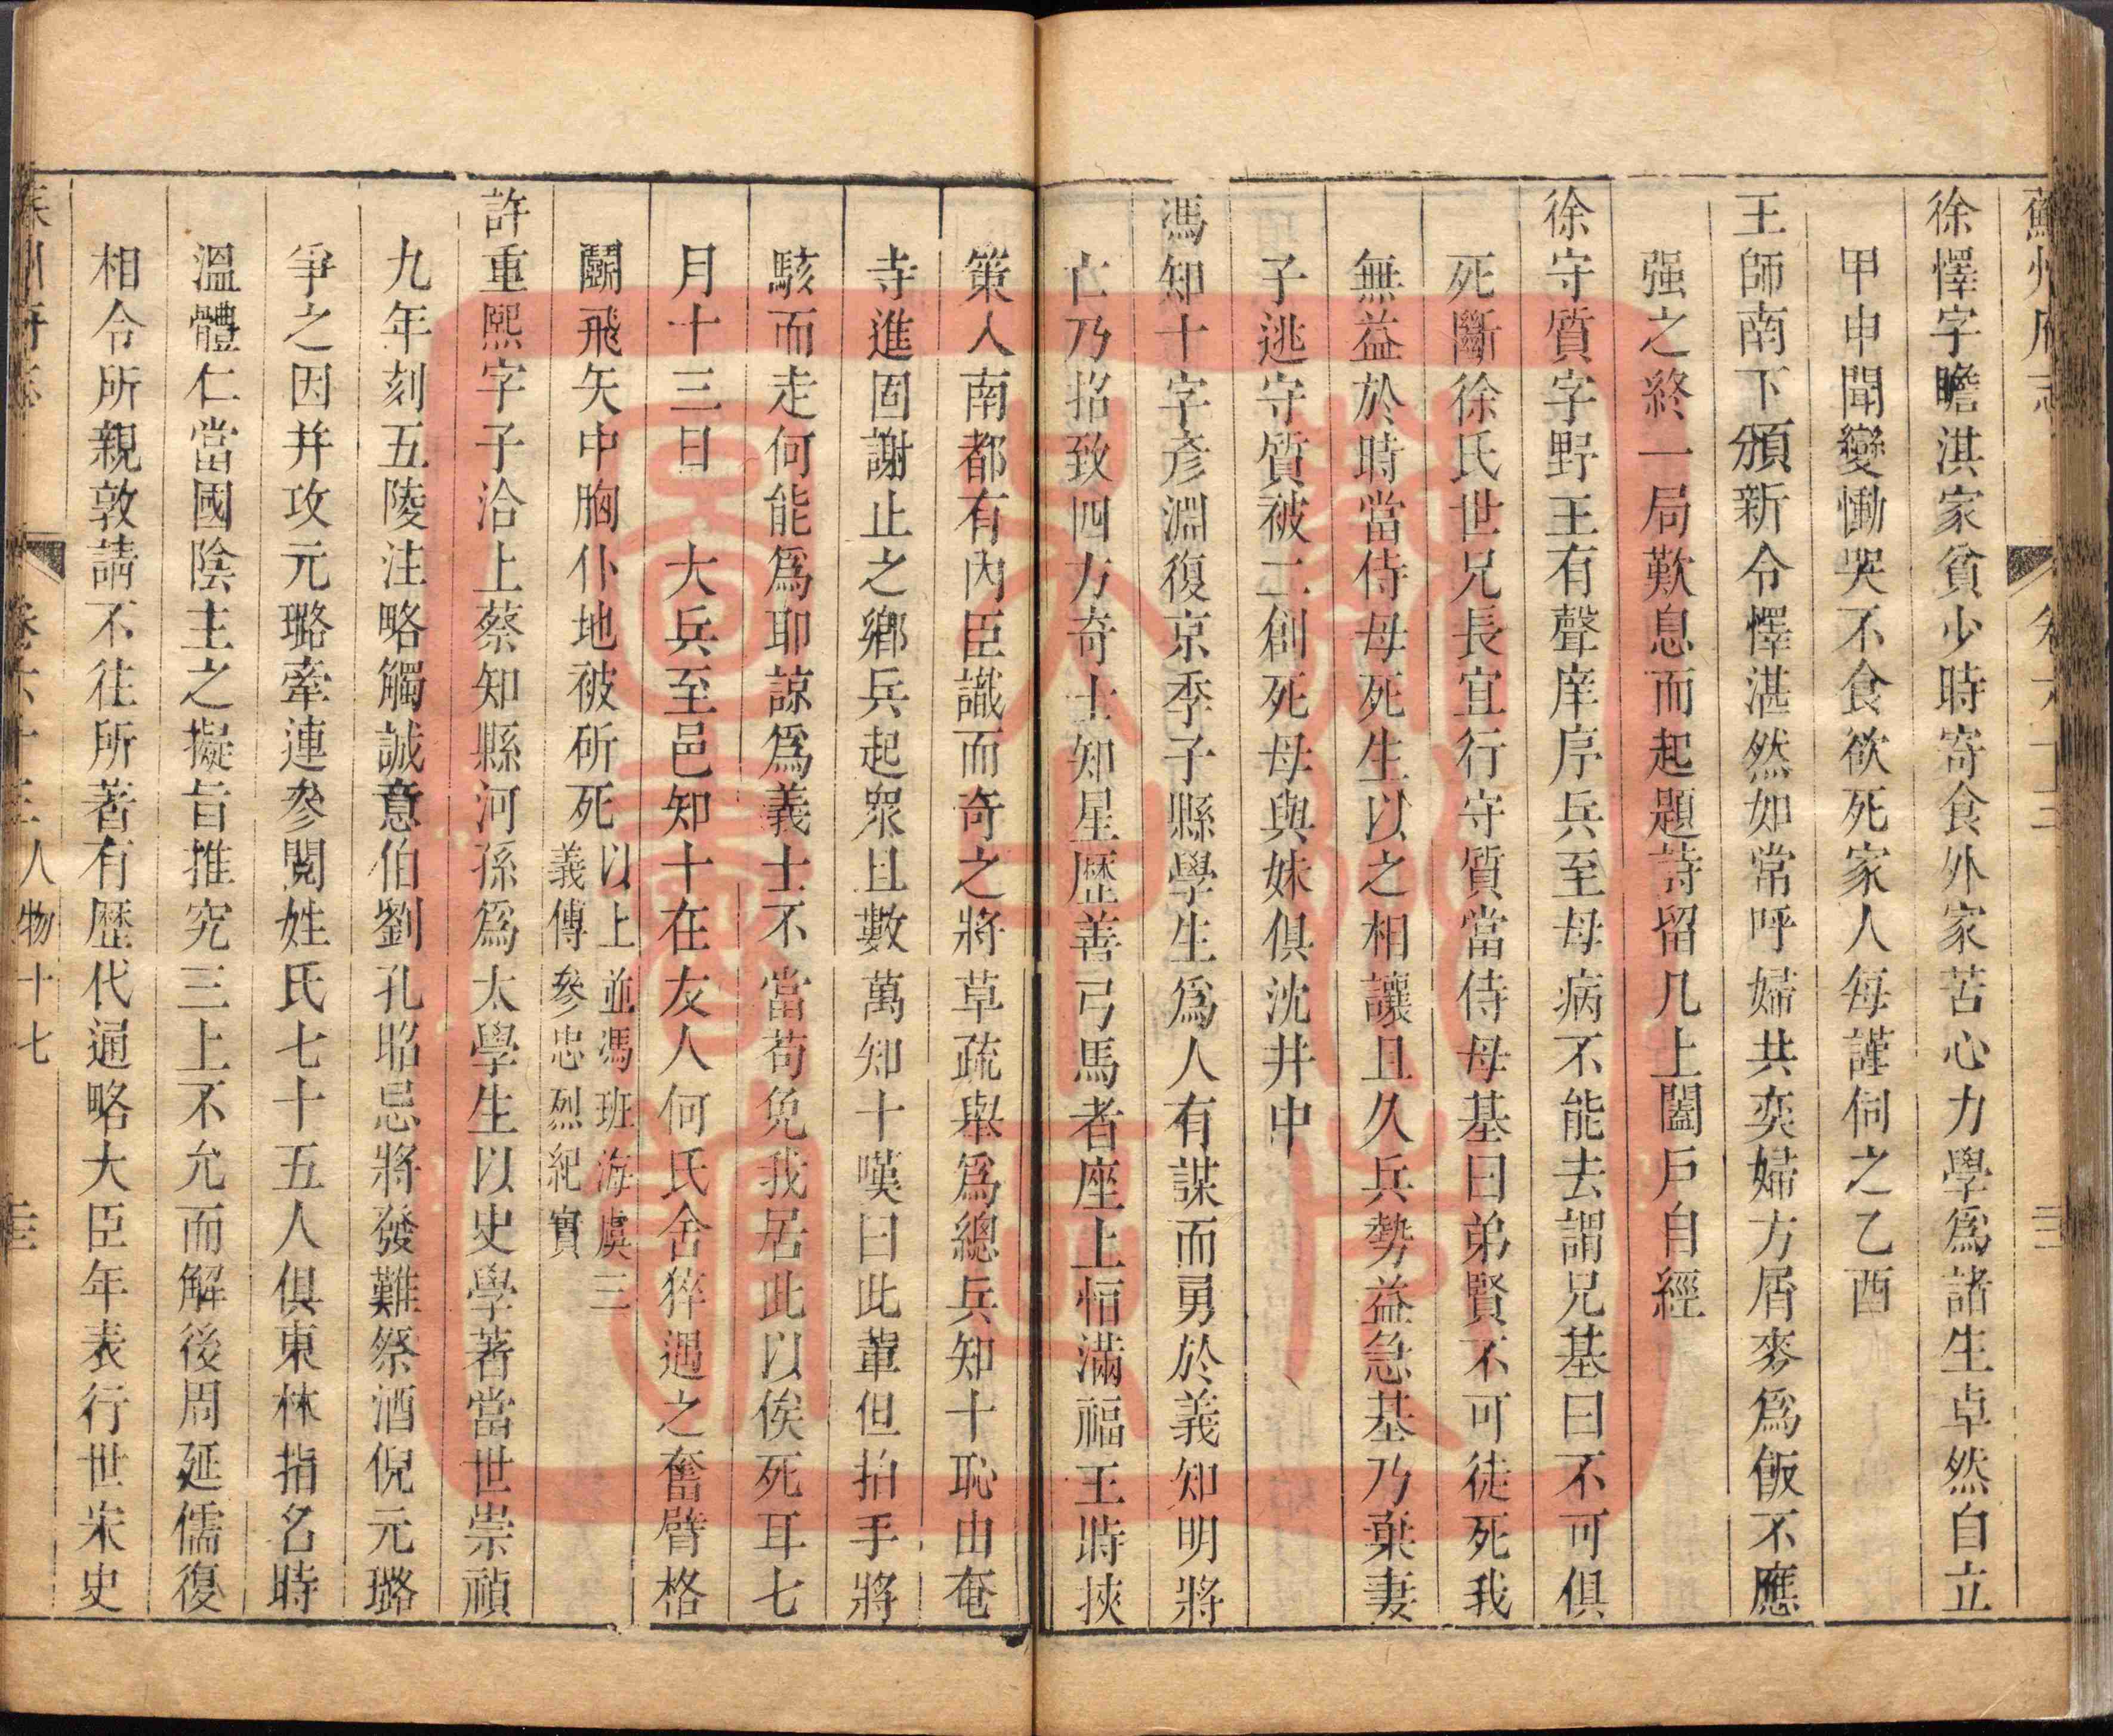 蘇州府志 卷六十三
徐懌字瞻淇家貧少時寄食外家苦心力學爲諸生卓然自立
甲申聞變慟哭不食欲死家人每謹伺之乙酉
王師南下頒新令懌湛然如常呼婦共奕婦方屑麥爲飯不應
强之終一局歎息而起題詩留几上闔戶自經
徐守質字野王有聲庠序兵至母病不能去謂兄基曰不可俱
死斷徐氏世兄長宜行守質當侍母基曰弟賢不可徒死我
無益於時當侍母死生以之相讓且久兵勢益急基乃棄妻
子逃守質被二創死母與妹俱沈井中
馮知十字彥淵復京季子縣學生爲人有謀而勇於義知明將
亡乃招致四方奇士知星歷善弓馬者座上恒滿福王時挾
策人南都有內臣識而奇之將草疏舉爲總兵知十恥由奄
寺進固謝止之鄉兵起衆且數萬知十嘆曰此輩但拍手將
駭而走何能爲耶諒爲義士不當苟免我居此以俟死耳七
月十三日 大兵至邑知十在友人何氏舍猝遇之奮臂格
鬬飛矢中胸仆地被斫死以上並馮班海虞三
義傳參忠烈紀實
許重熙字子洽上蔡知縣河孫爲太學生以史學著當世崇禎
九年刻五陵注略觸誠意伯劉孔昭忌將發難祭酒倪元璐
爭之因并攻元璐牽連參閱姓氏七十五人俱東林指名時
溫體仁當國陰主之擬旨推究三上不允而解後周延儒復
相令所親敦請不往所著有歷代通略大臣年表行世宋史
蘇州府志 卷六十三 人物十七